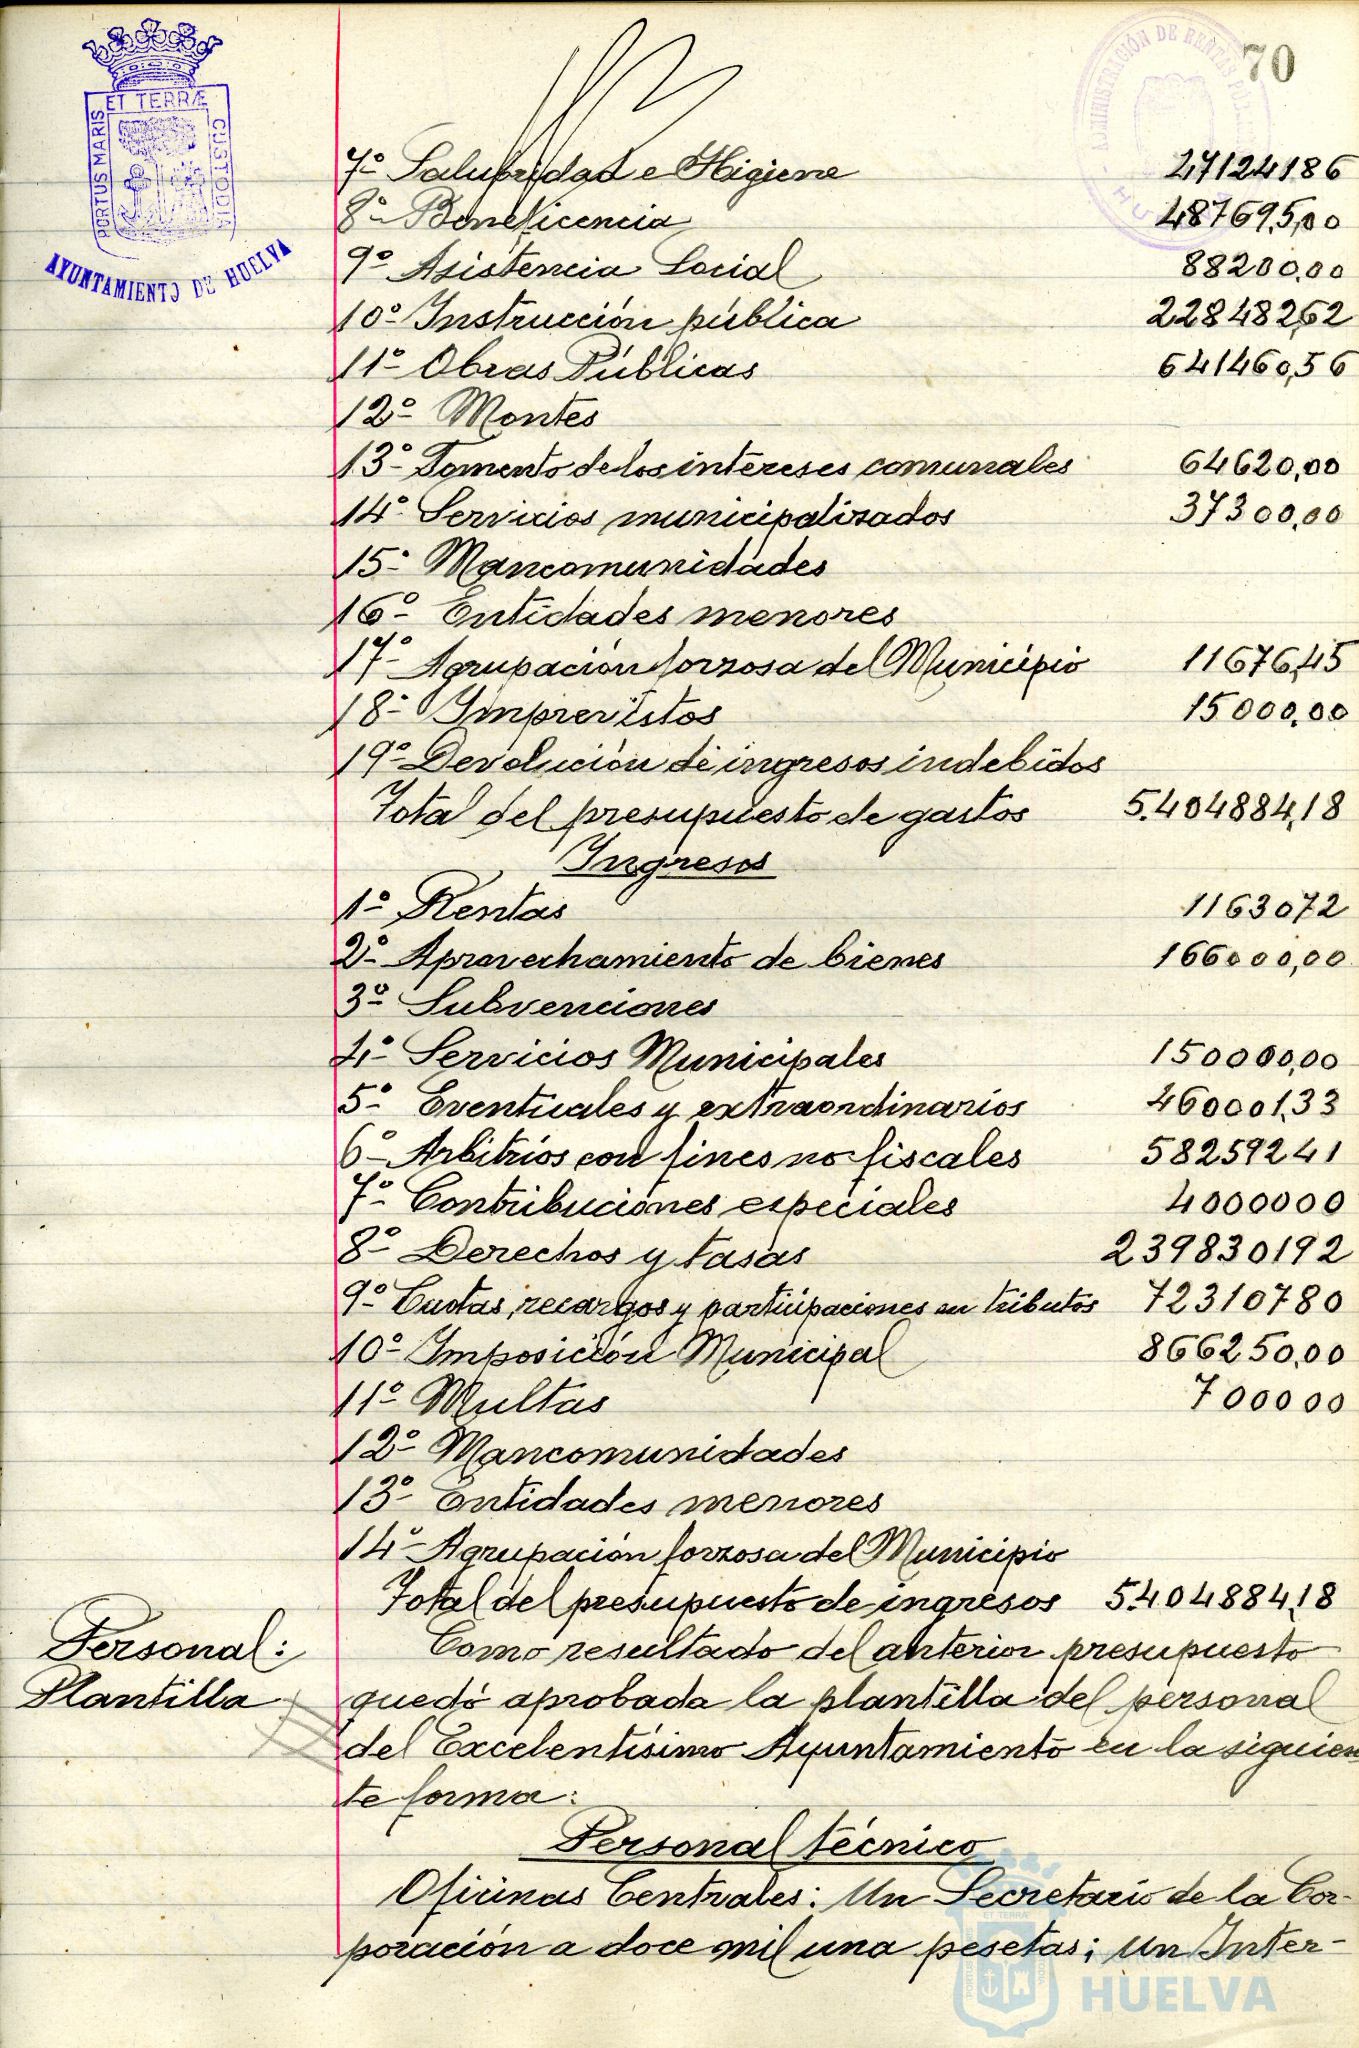 70
ADMINISTRACIÓN DE RENTAS
ET TERRÆ
PORTUS MARIS
CUSTODIA
AYUNTAMIENTO DE HUELVA
7º Salubridad e Higiene 47124186
8º Beneficencia 487695,00
9º Asistencia Social 88200,00
10º Instrucción pública 228482,62
11º Obras Públicas 641460,56
12º Montes
13º Fomento de los intereses comunales 64620,00
14º Servicios municipalizados 37300,00
15º Mancomunidades
16º Entidades menores
17º Agrupación forzosa del Municipio 11676,45
18º Imprevistos 15000,00
19º Devolución de ingresos indebidos
Total del presupuesto de gastos 5.404884,18
Ingresos
1º Rentas 1163072
2º Aprovechamiento de bienes 166000,00
3º Subvenciones
4º Servicios Municipales 150000,00
5º Eventuales y extraordinarios 460001,33
6º Arbitrios con fines no fiscales 58259241
7º Contribuciones especiales 4000000
8º Derechos y tasas 239830192
9º Cuotas, recargos y participaciones en tributos 72310780
10º Imposición Municipal 866250,00
11º Multas 700000
12º Mancomunidades
13º Entidades menores
14º Agrupación forzosa del Municipio
Total del presupuesto de ingresos 5.404884,18
Personal:
Plantilla
Como resultado del anterior presupuesto
quedó aprobada la plantilla del personal
del Excelentísimo Ayuntamiento en la siguien
te forma:
Personal técnico
Oficinas Centrales: Un Secretario de la Cor-
poración a doce mil una pesetas; Un Inter-
Ayuntamiento de
HUELVA